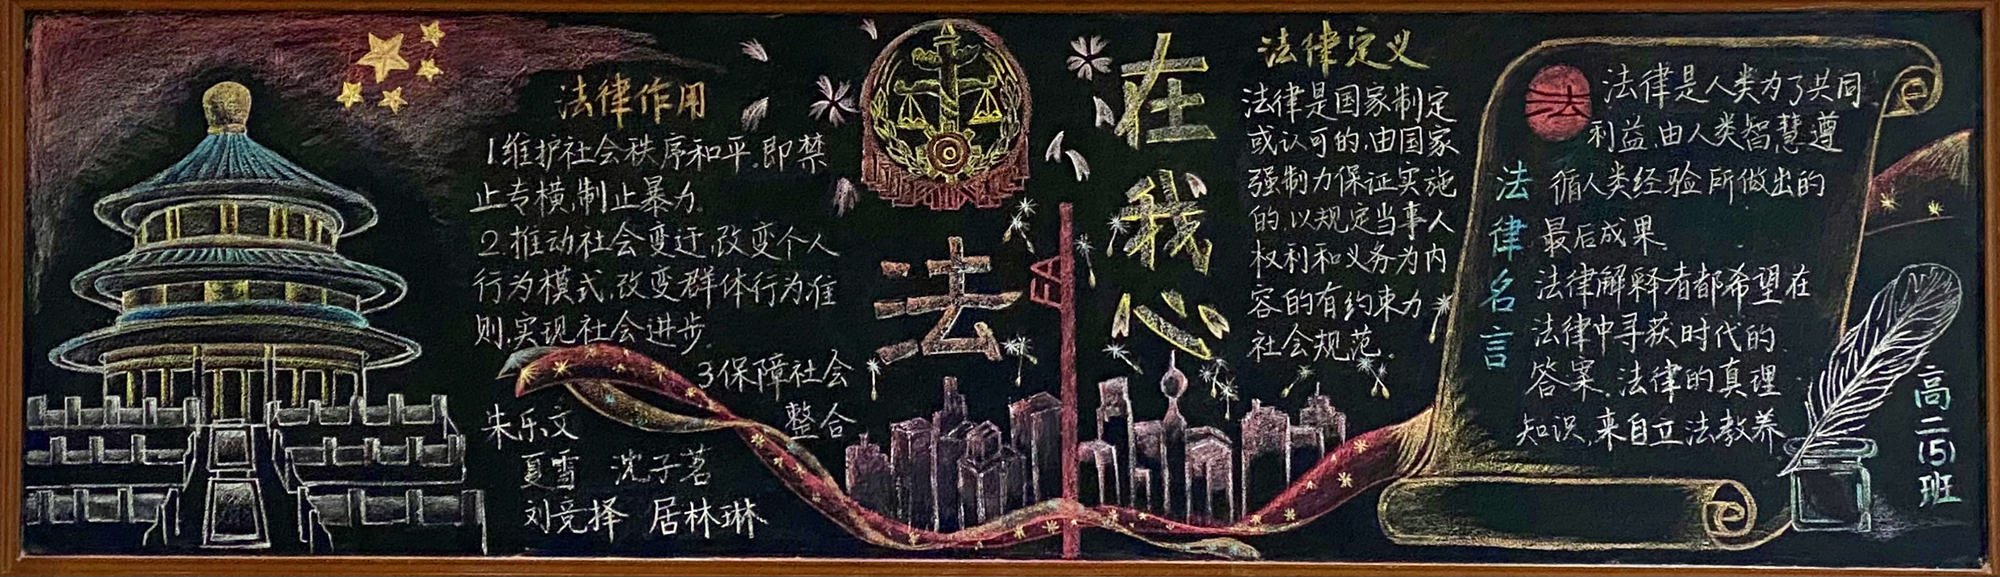 法律作用
1.维护社会秩序和平.即禁
止专横,制止暴力.
2.推动社会变迁,改变个人
行为模式,改变群体行为准
则,实现社会进步.
3保障社会
整合
朱乐文
夏雪 沈子茗
刘竞择 居林琳
法
在我心
法律定义
法律是国家制定
或认可的,由国家
强制力保证实施
的,以规定当事人
权利和义务为内
容的有约束力
社会规范。
法
法律名言
法律是人类为了共同
利益,由人类智慧遵
循人类经验所做出的
最后成果.
法律解释者都希望在
法律中寻获时代的
答案.法律的真理
知识,来自立法教养
高二(5)班